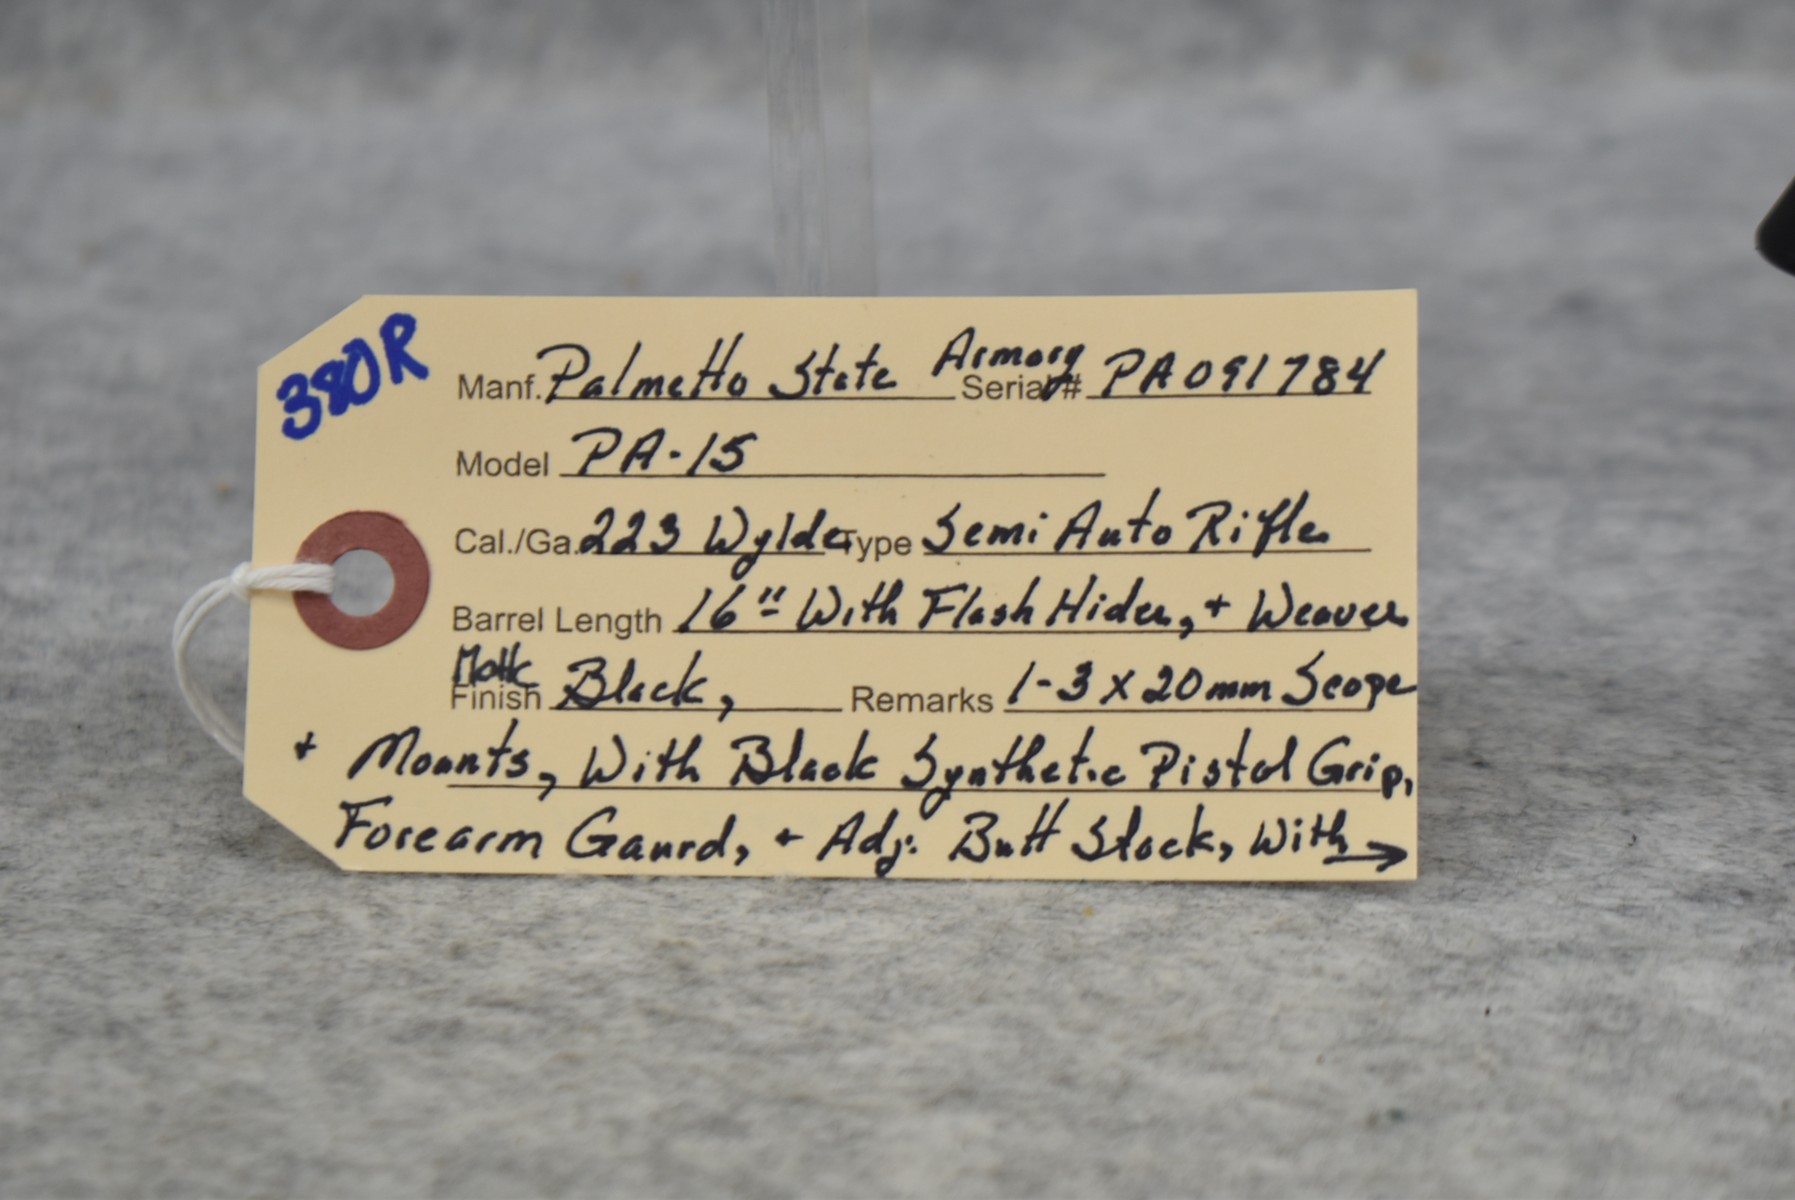 380R
Manf. Palmetto State Armory Serial # PA091784
Model PA-15
Cal./Ga. 223 Wylde Type Semi Auto Rifle
Barrel Length 16" With Flash Hider, + Weaver
Finish Matte Black, Remarks 1-3 x 20mm Scope
+ Mounts, With Black Synthetic Pistol Grip,
Forearm Gaurd, + Adj. Butt Stock, With →